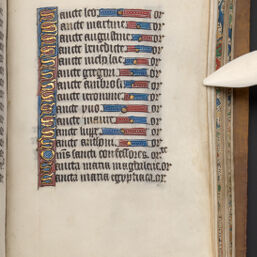 Sancte leo or
Sancte martine or
Sancte augustine or
Sancte benedicte or
Sancte nicholae or
Sancte gregori or
Sancte ambrosi or
Sancte ieronime or
Sancte yuo or
Sancte maure or
Sancte or
Sancte antoni or
Omns sancti confessores. or
Sancta maria magdalene. or
Sancta maria egyptiaca. or